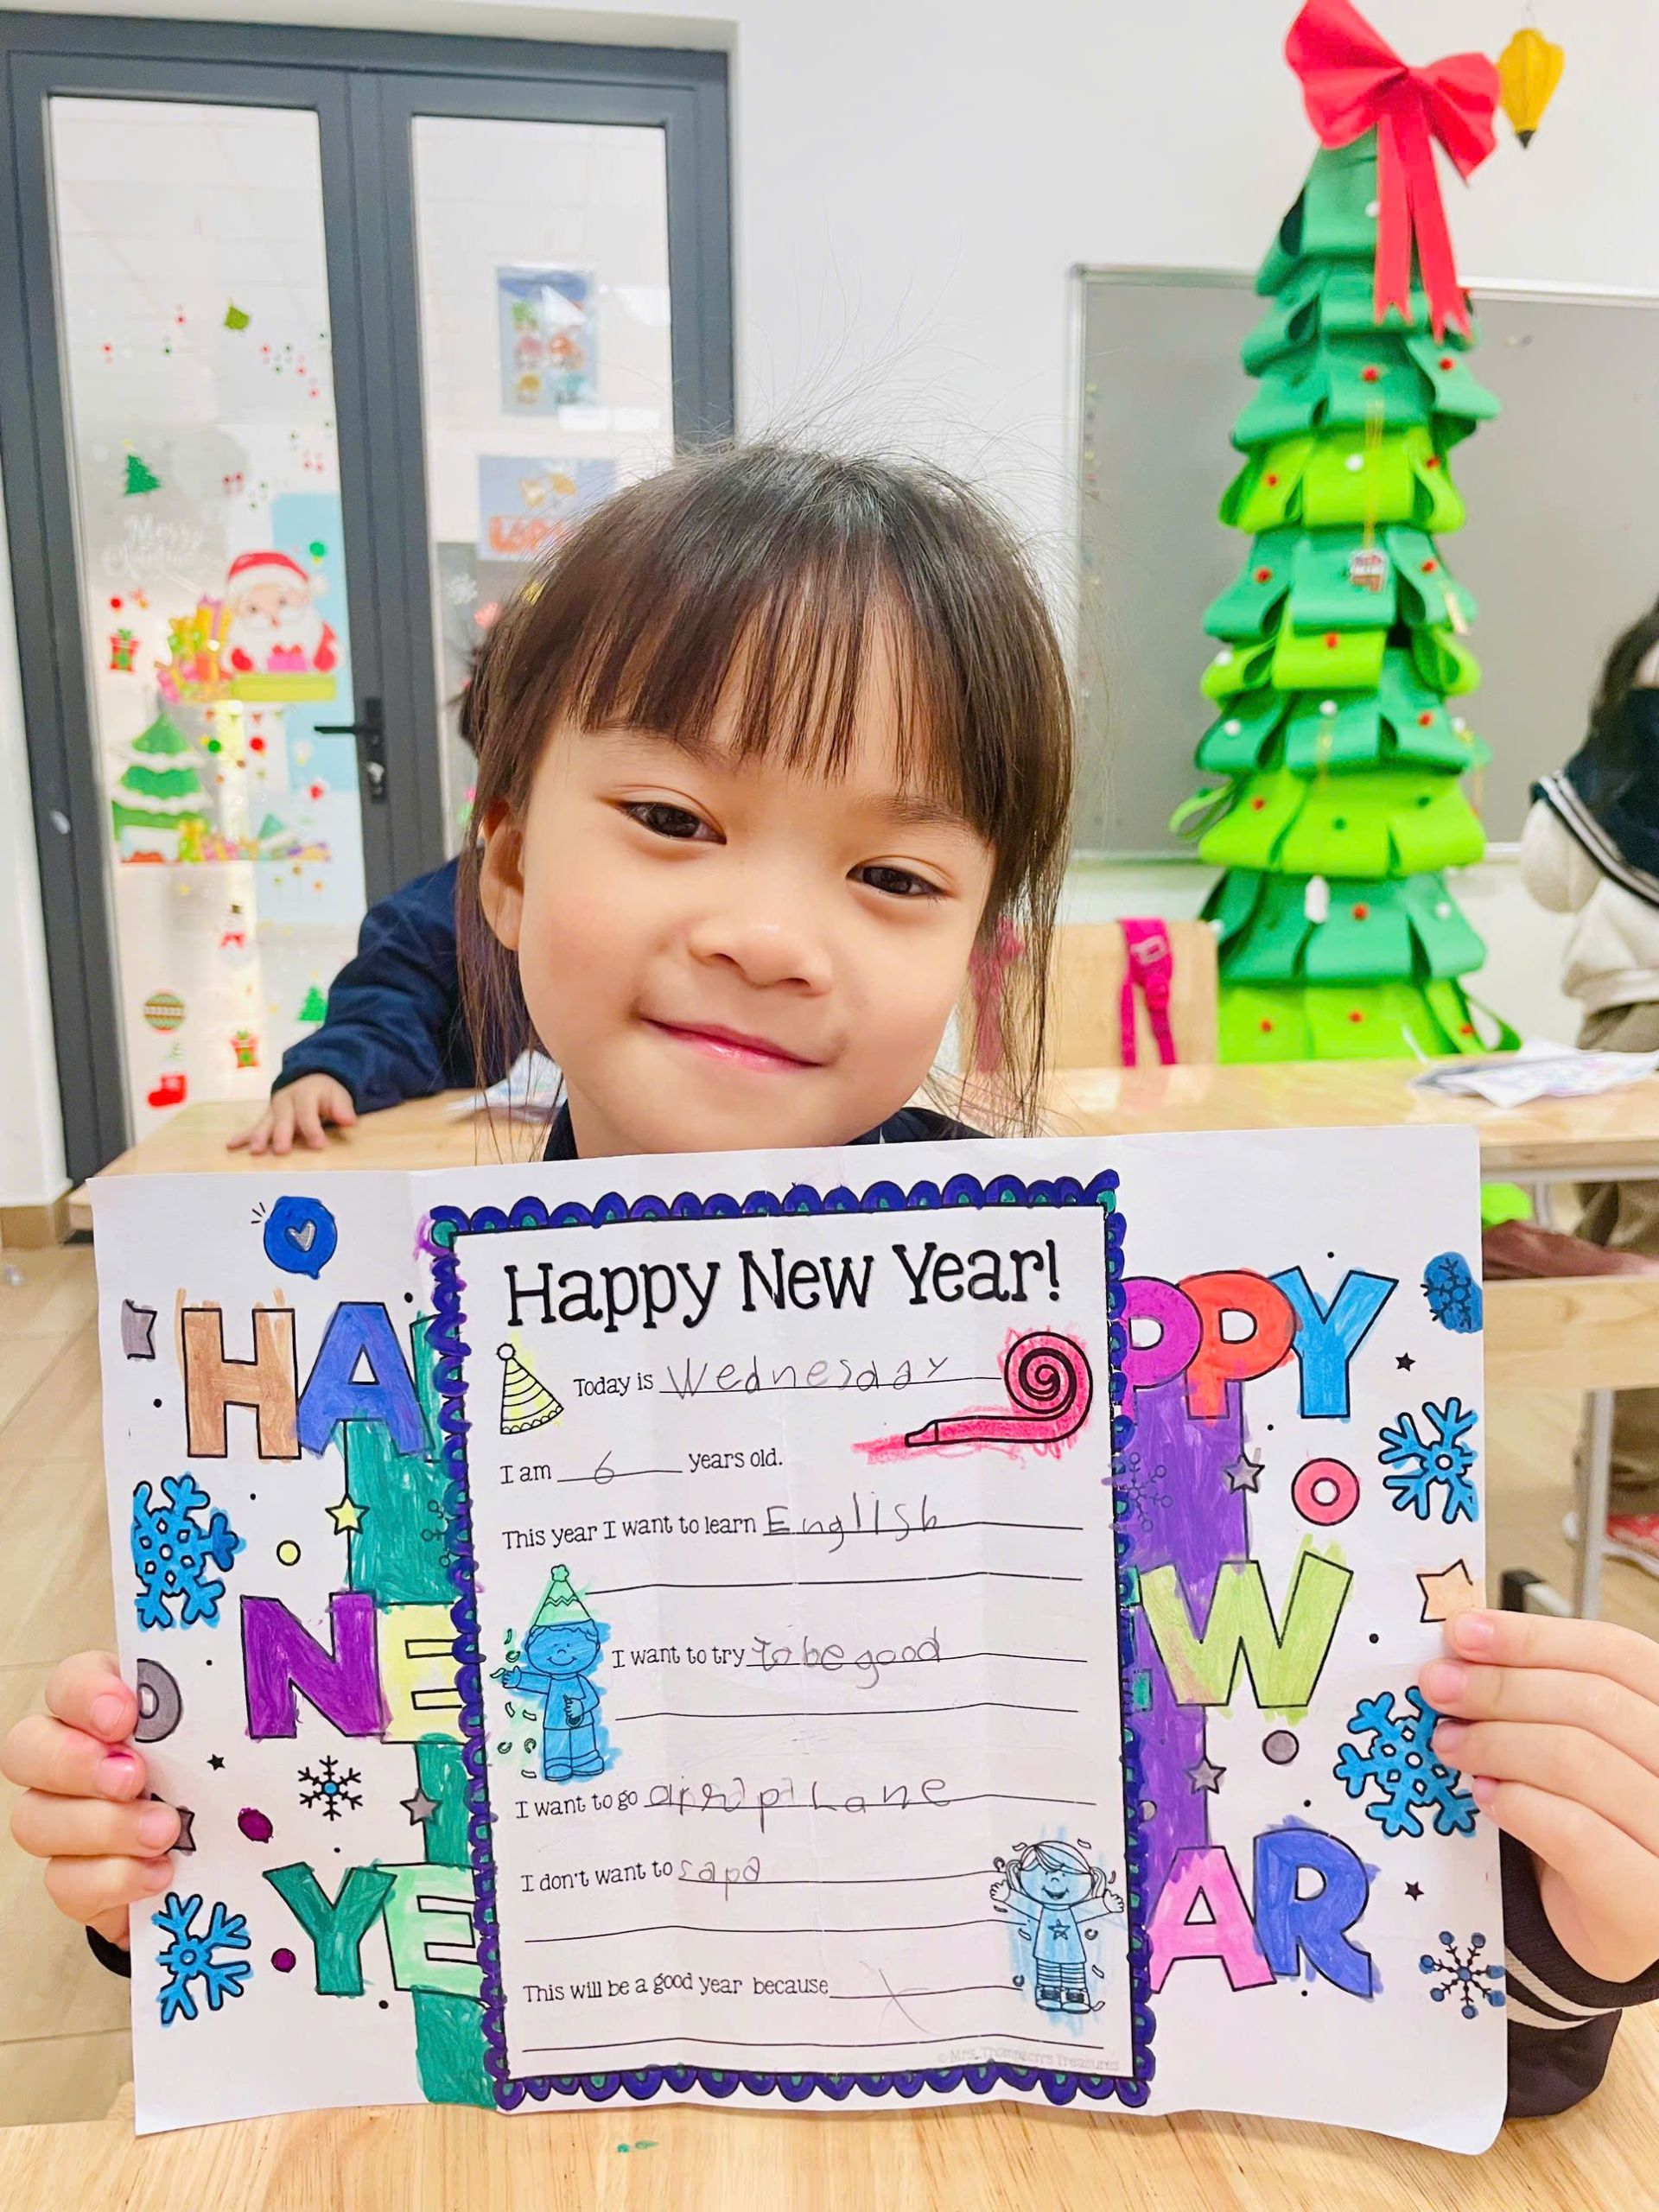 Merry
Christmas
HAPPY
NEW
YEAR
Happy New Year!
Today is Wednesday
I am 6 years old.
This year I want to learn English
I want to try to be good
I want to go airplane
I don't want to sapa
This will be a good year because
© Mrs. Thompson's Treasures